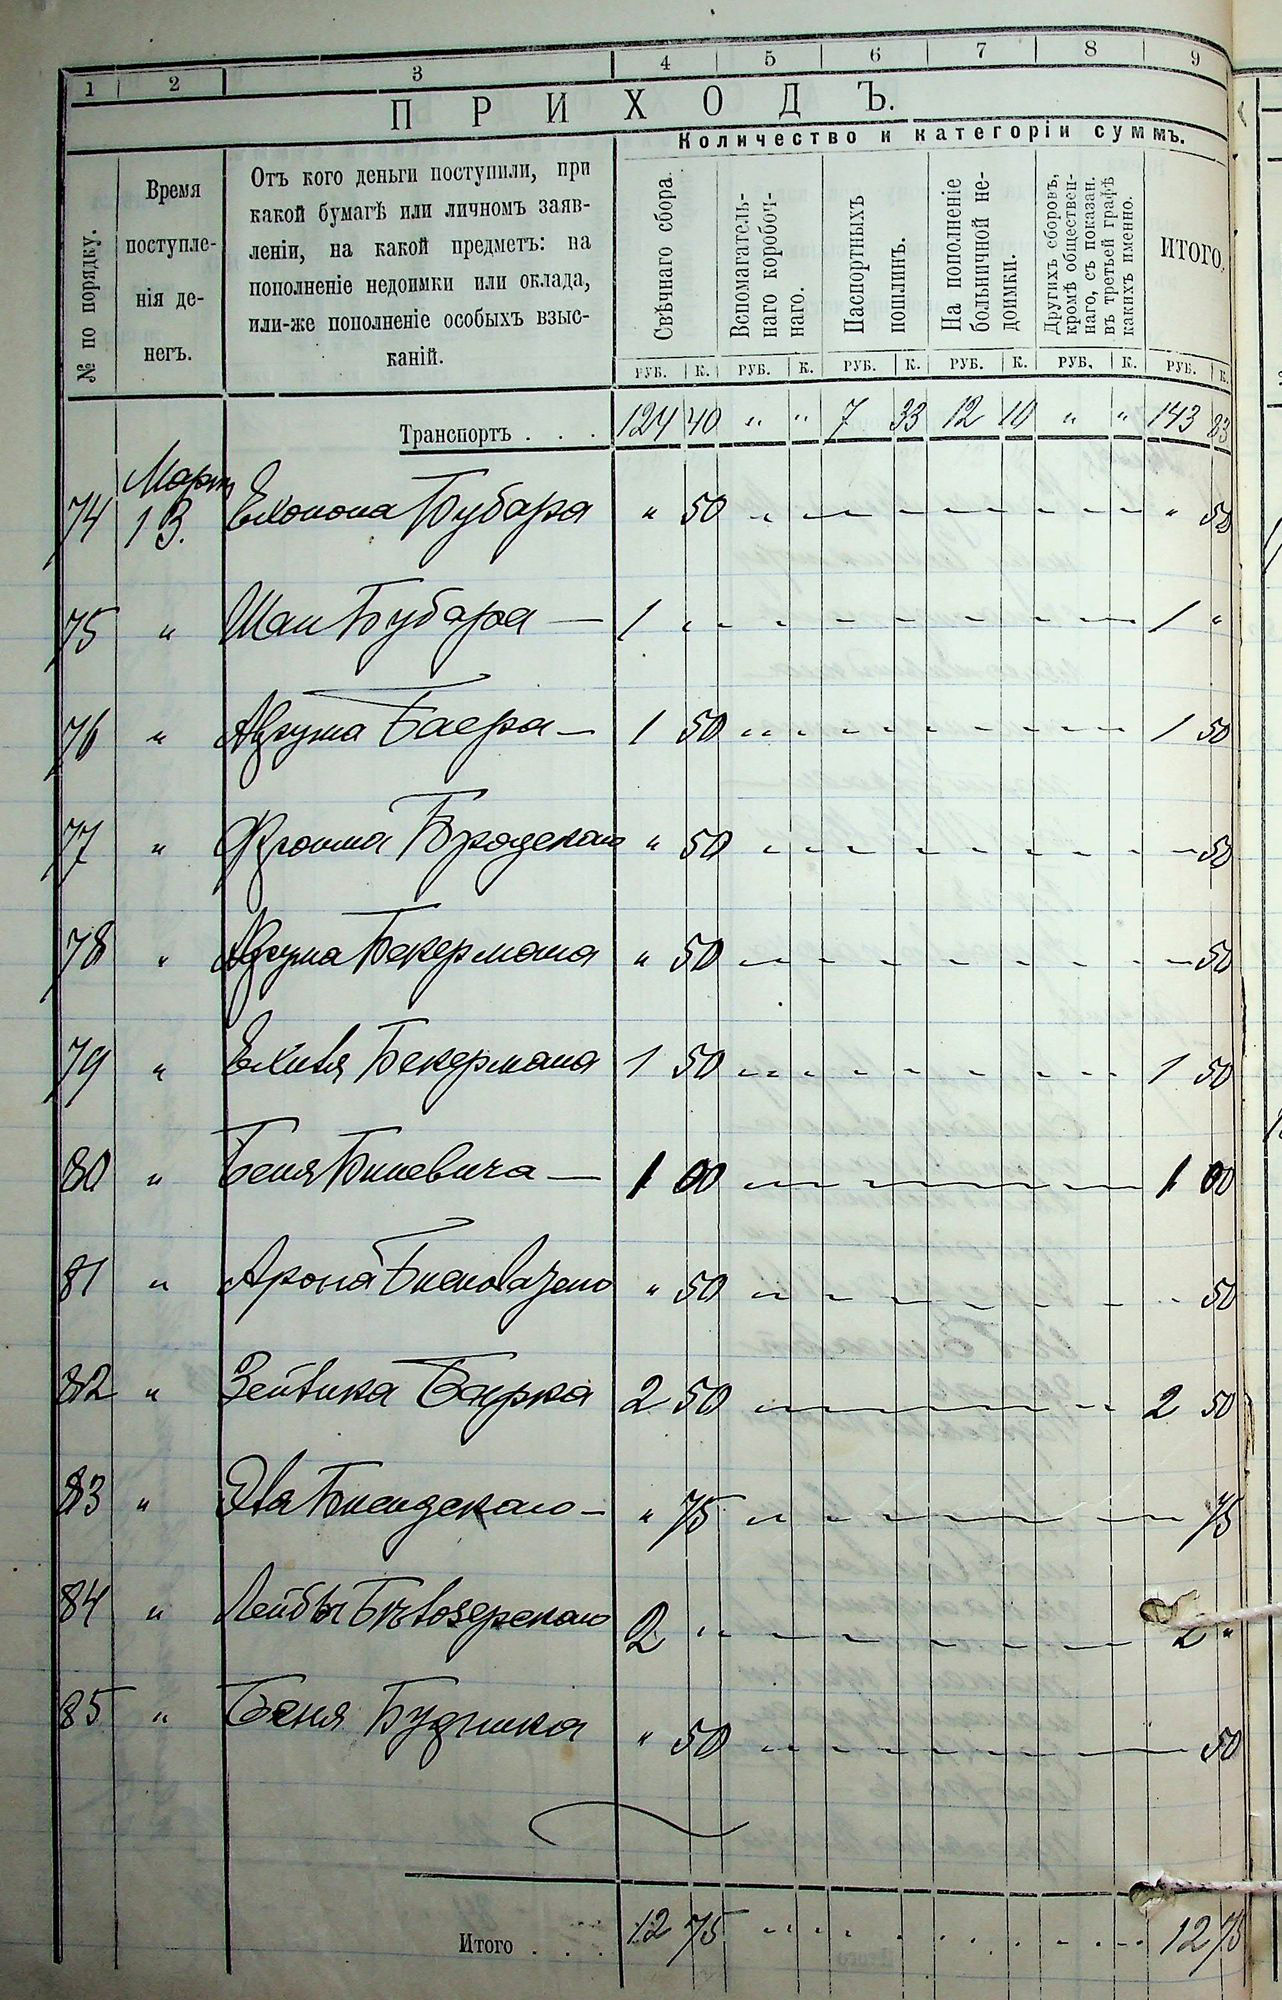 1 2 3 4 5 6 7 8 9
ПРИХОДЪ.
Количество и категоріи суммъ.
№ по порядку.
Время поступле-
нія де-
негъ.
Отъ кого деньги поступили, при
какой бумагѣ или личномъ заяв-
леніи, на какой предметъ: на
пополненіе недоимки или оклада,
или-же пополненіе особыхъ взыс-
каній.
Свѣчнаго сбора.
Вспомагатель-
наго коробоч-
наго.
Паспортныхъ
пошлинъ.
На пополненіе
больничной не-
доимки.
Другихъ сборовъ,
кромѣ обществен-
наго, съ показан.
въ третьей графѣ
какихъ именно.
ИТОГО.
РУБ. К. РУБ. К. РУБ. К. РУБ. К. РУБ. К. РУБ. К.
Транспортъ . . . 124 40 " " 7 33 12 10 " " 143 83
Мартъ
74 13. Бубара " 50 " 50
75 " Шаи Бубара — 1 " 1 "
76 " Аврума Баера — 1 50 1 50
77 " Фроима Бродскаго " 50 50
78 " Аврума Бекермана " 50 50
79 " Бекермана 1 50 1 50
80 " Беня Билевича — 1 00 1 00
81 " Арона " 50 50
82 " Зейвика Барка 2 50 2 50
83 " " 75 75
84 " Лейбы Бѣлозерскаго 2 " 2 "
85 " Беня Будника " 50 50
Итого . . . 12 75 12 75